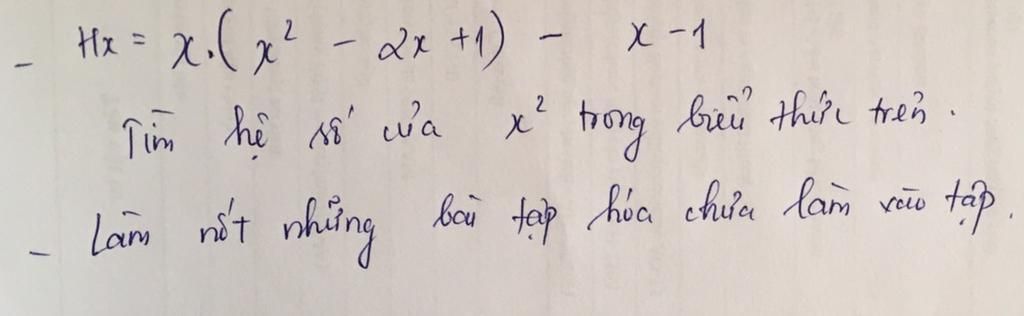 - Hx = x.( x² - 2x + 1) - x - 1
Tìm hệ số của x² trong biểu thức trên.
- Làm nốt những bài tập hóa chưa làm vào tập.